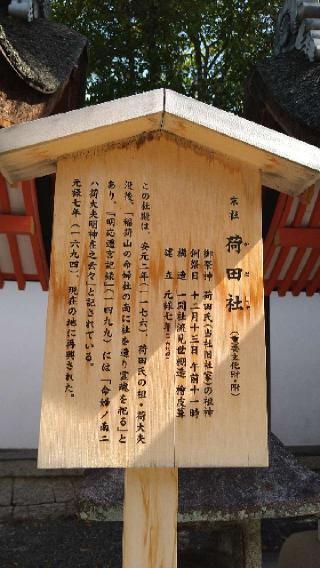 末社 荷田社 (重要文化財・附)
かだしゃ
御祭神 荷田氏(当社旧社家)の祖神
例祭日 十二月十三日 午前十一時
構造 一間社流見世棚造 檜皮葺
建立 元禄七年(一六九四)
この社殿は、安元二年(一一七六)、荷田氏の祖・荷大夫
没後、「稲荷山の命婦社の南に社を造り霊魂を祀る」と
あり、「明応遷宮記録」(一四九九)には「命婦ノ南ニ
ハ荷大夫明神在之云々」と記されている。
元禄七年(一六九四)、現在の地に再興された。